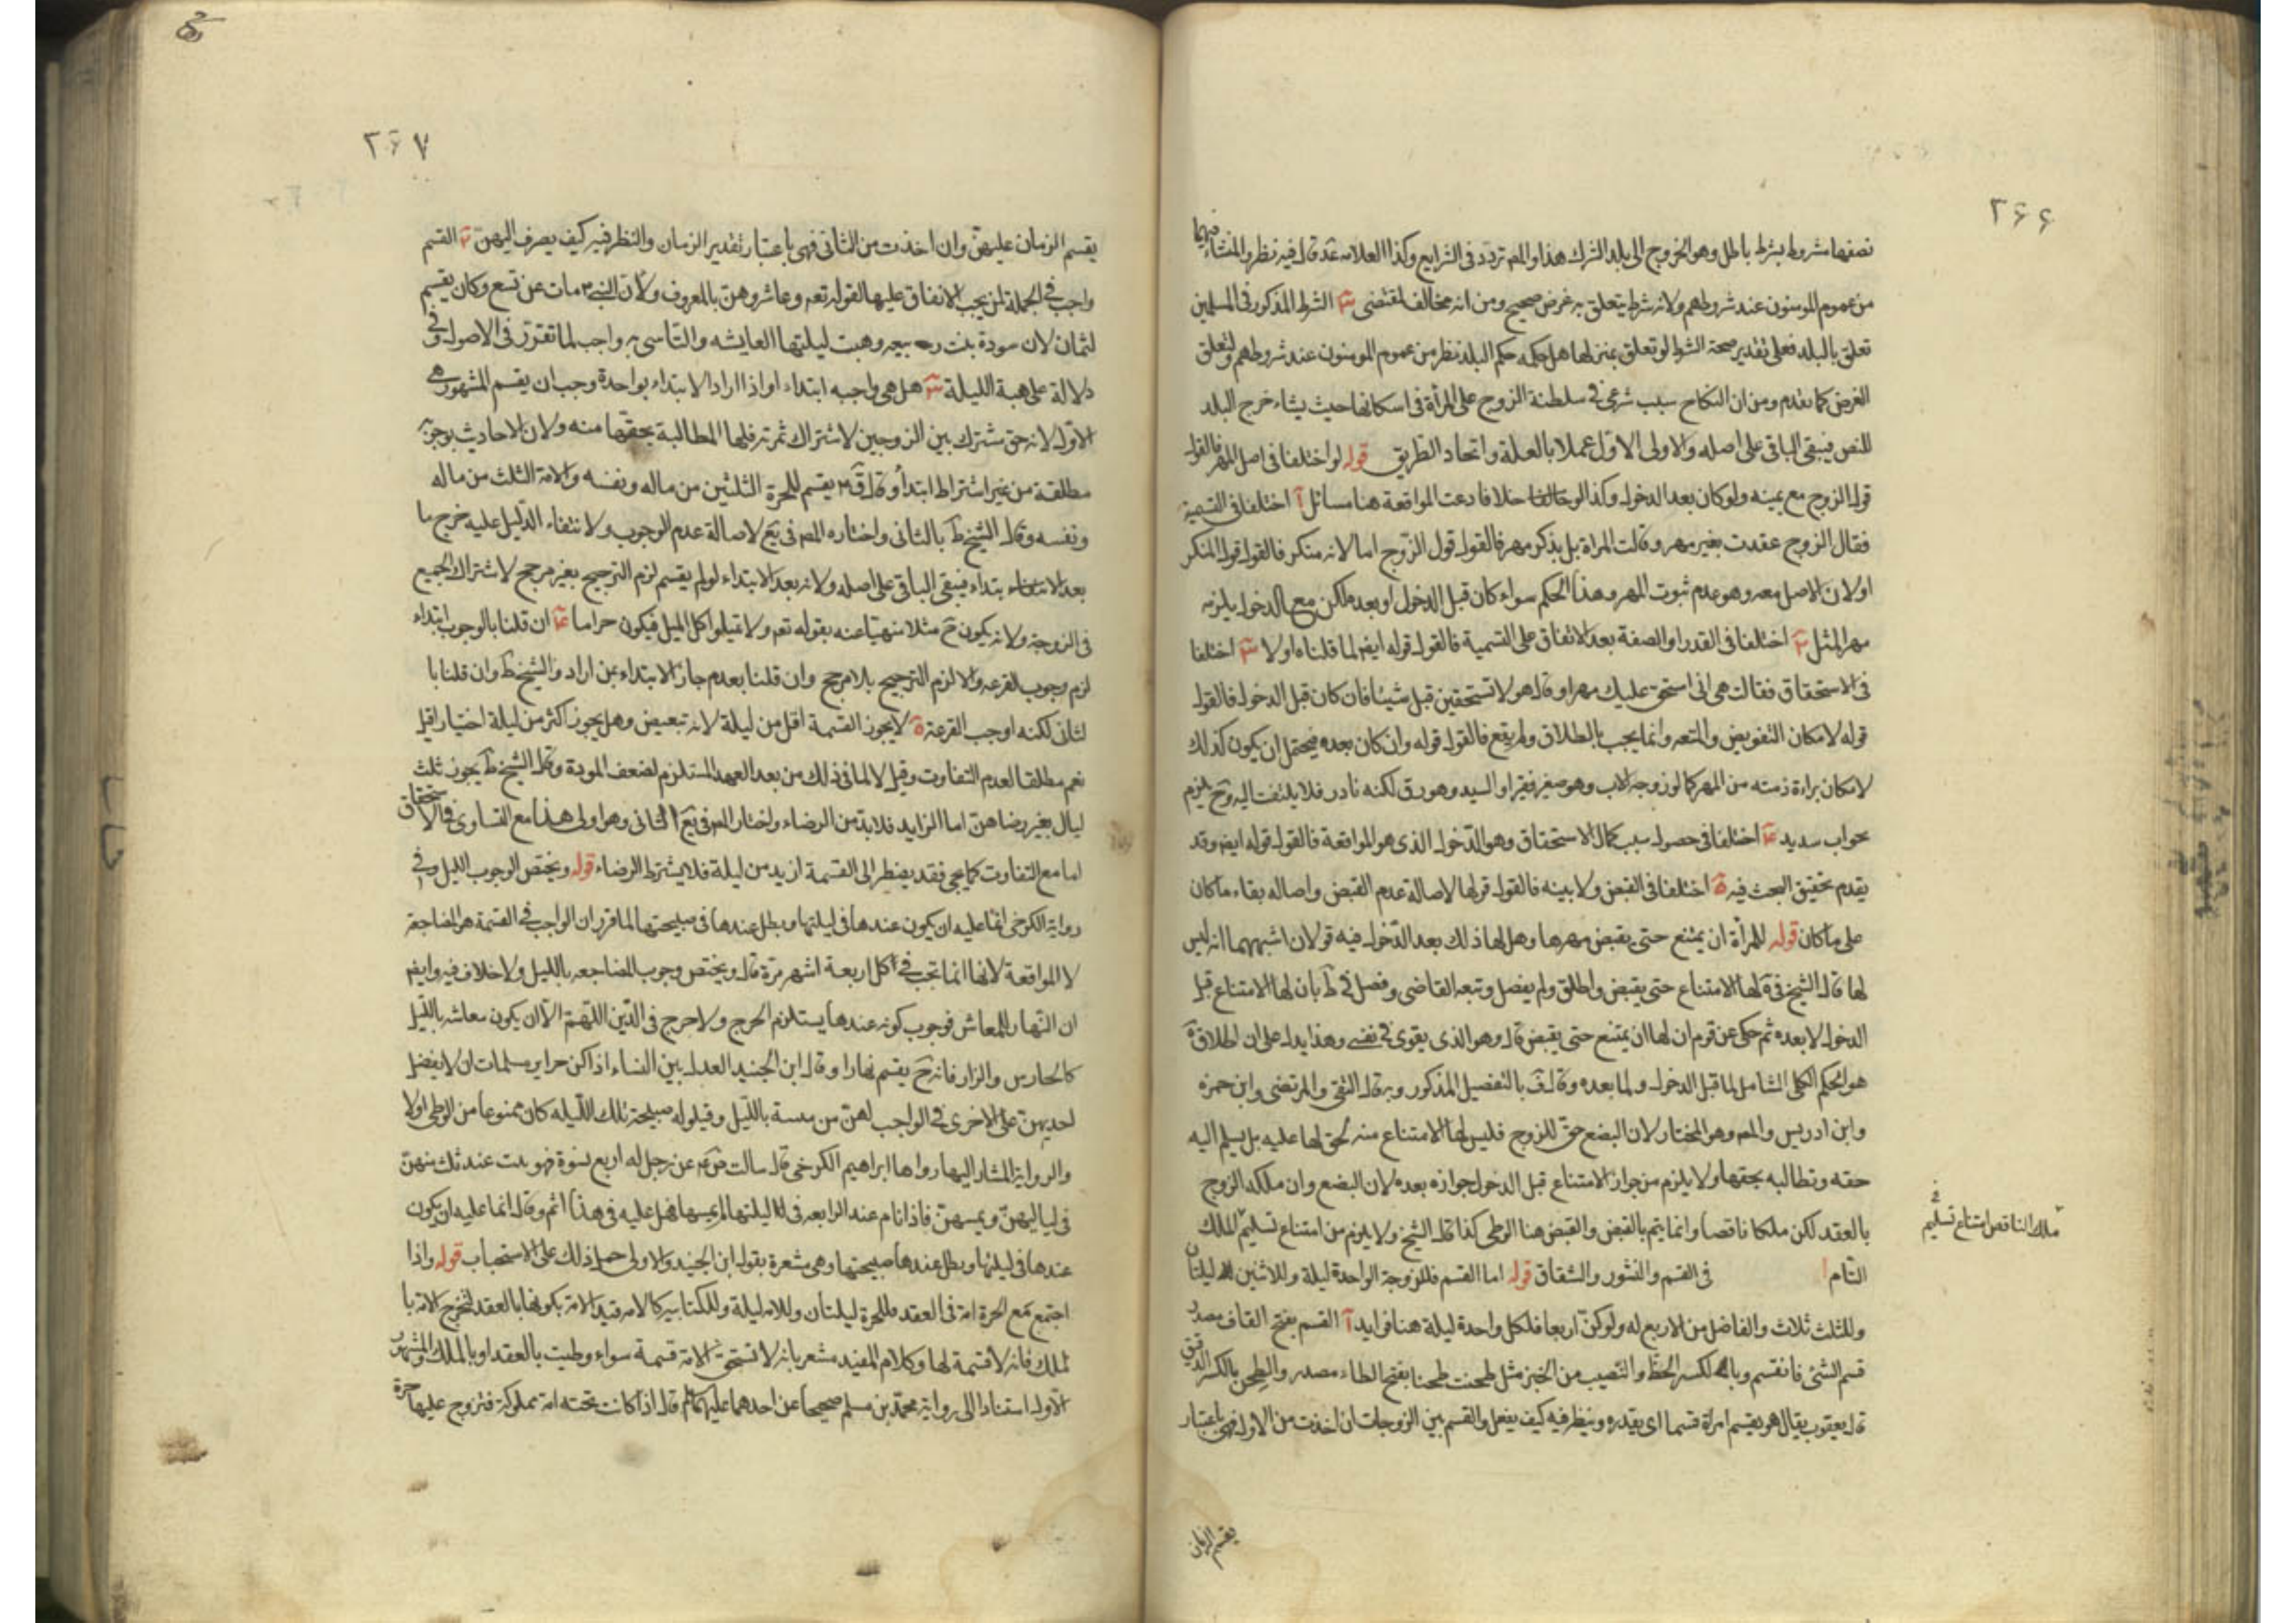 ٢٦٦
نصفها مشروط بشرط باطل وهو الخروج الى بلد الشرك هذا والمص تردد فى الشرايع وكذا العلامه عد قال فيه نظر والمنشاء فيهما
من عموم المومنون عند شروطهم ولانه شرط يتعلق به غرض صحيح ومن انه مخالف لمقتضى ٣ الشرط المذكور فى المسلمين
تعلق بالبلد فعلى تقدير صحة الشرط لو تعلق بمنزلها هل حكمه حكم البلد نظر من عموم المومنون عند شروطهم ولتعلق
الغرض كما تقدم ومن ان النكاح سبب شرعى فى سلطنة الزوج على المرأة فى اسكانها حيث يشاء خرج البلد
للنص فيبقى الباقى على اصله والاولى الاول عملا بالعلة واتحاد الطريق قوله لو اختلفا فى اصل المهر فالقول
قول الزوج مع يمينه ولو كان بعد الدخول وكذا لو خلا فادعت المواقعة هنا مسائل آ اختلفا فى التسمية
فقال الزوج عقدت بغير مهر وقالت المراة بل بذكر مهر فالقول قول الزوج اما لانه منكر فالقول قول المنكر
او لان الاصل معه وهو عدم ثبوت المهر وهذا الحكم سواء كان قبل الدخول او بعده لكن مع الدخول يلزمه
مهر المثل ٢ اختلفا فى القدر او الصفة بعد الاتفاق على التسمية فالقول قوله ايض لما قلناه اولا ٣ اختلفا
فى الاستحقاق فقالت هى انى استحق عليك مهرا وقال هو لا تستحقين قبلى شيئا فان كان قبل الدخول فالقول
قوله لامكان التفويض والمتعه وانما يجب بالطلاق ولم يقع فالقول قوله وان كان بعده فيحتمل ان يكون كذلك
لامكان براءة ذمته من المهر كما لو زوجه الاب وهو صغير فقير او السيد وهو رق لكنه نادر فلا يلتفت اليه وح يلزم
بجواب سديد ٤ اختلفا فى حصول سبب كمال الاستحقاق وهو الدخول الذى هو المواقعة فالقول قوله ايض وقد
يقدم تحقيق البحث فيه ة اختلفا فى القبض ولا بينه فالقول قولها لاصالة عدم القبض واصاله بقاء ما كان
على ما كان قوله للمرأة ان يمتنع حتى يقبض مهرها وهل لها ذلك بعد الدخول فيه قولان اشبههما انه ليس
لها قال الشيخ فى ية لها الامتناع حتى يقبض واطلق ولم يفصل وتبعه القاضى وفصل فى ط بان لها الامتناع قبل
الدخول لا بعده ثم حكى عن قوم ان لها ان يمتنع حتى يقبض قال وهو الذى يقوى فى نفسى وهذا يدل على ان اطلاق ية
هو الحكم الكلى الشامل لما قبل الدخول ولما بعده وقال ف بالتفصيل المذكور وبه قال التقى والمرتضى وابن حمزه
وابن ادريس والمص وهو المختار لان البضع حق للزوج فليس لها الامتناع منه لحق لها عليه بل يسلم اليه
حقه وتطالبه بحقها ولا يلزم من جواز الامتناع قبل الدخول جوازه بعده لان البضع وان ملكه الزوج
بالعقد لكن ملكا ناقصا وانما يتم بالقبض والقبض هنا الوطى كذا قال الشيخ ولا يلزم من امتناع تسليم الملك
ملك الناقص امتناع تسليم
التام فى القسم والنشوز والشقاق قوله اما القسم فللزوجة الواحدة ليلة وللاثنين ليلتان
وللثلث ثلاث والفاضل من الاربع له ولو كن اربعا فلكل واحدة ليلة هنا فوايد آ القسم بفتح القاف مصدر
قسم الشئ فانقسم وبالكسر الحظ والنصيب من الخبز مثل طحنت طحنا بفتح الطاء مصدر والطحن بالكسر الدقيق
قال يعقوب يقال هو يقسم امراة قسما اى يقدره وينظر فيه كيف يفعل والقسم بين الزوجات ان اخذت من الاول فهى باعتبار
يقسم الزمان
٢٦٧
يقسم الزمان عليهن وان اخذت من الثانى فهى باعتبار تقدير الزمان والنظر فيه كيف يصرف اليهن ٢ القسم
واجب فى الجملة لمن يجب الانفاق عليها لقوله تعه وعاشروهن بالمعروف ولان النبى ص مات عن تسع وكان يقسم
لثمان لان سودة بنت زمعه وهبت ليلتها لعايشه والتاسى به واجب لما تقرر فى الاصول وفى
دلالة على هبة الليلة ٣ هل هى واجبه ابتداء او اذا اراد الابتداء بواحدة وجب ان يقسم المشهور هى
الاول لانه حق مشترك بين الزوجين لاشتراك ثمرته فلها المطالبة بحقها منه ولان الاحاديث بوجوبه
مطلقة من غير اشتراط ابتدأ وقال ق يقسم للحرة الثلثين من ماله ونفسه والامة الثلث من ماله
ونفسه وقال الشيخ ط بالثانى واختاره المص فى يع لاصالة عدم الوجوب ولانتفاء الدليل عليه خرج ما
بعد الابتداء فيبقى الباقى على اصله ولانه بعد الابتداء لو لم يقسم لزم الترجيح بغير مرجح لاشتراك الجميع
فى الزوجة ولانه يكون ح مثلا منهيا عنه بقوله تعه ولا تميلوا كل الميل فيكون حراما ٤ ان قلنا بالوجوب ابتداء
لزم وجوب القرعه والا لزم الترجيح بلا مرجح وان قلنا بعدمه جاز الابتداء بمن اراد والشيخ ط وان قلنا با
لثانى لكنه اوجب القرعة ة لا يجوز القسمة اقل من ليلة لانه تبعيض وهل يجوز اكثر من ليلة اختيارا قيل
نعم مطلقا لعدم التفاوت وقيل لا لما فى ذلك من بعد العهد المستلزم لضعف المودة وقال الشيخ ط يجوز ثلث
ليال بغير رضاهن اما الزايد فلا بد من الرضاء واختار المص فى يع الثانى وهو اولى هذا مع التساوى فى الاستحقاق
اما مع التفاوت كما يجى فقد يضطر الى القسمة ازيد من ليلة فلا يشترط الرضاء قوله ويختص الوجوب الليل وفى
رواية الكرخى انما عليه ان يكون عندها فى ليلتها ويظل عندها فى صبيحتها لما قرر ان الواجب فى القسمة هو المضاجعة
لا المواقعة لانها انما تجب فى كل اربعة اشهر مرة قال ويختص وجوب المضاجعه بالليل ولا خلاف فيه وايض
ان النهار للمعاش فوجوب كونه عندها يستلزم الحرج ولا حرج فى الدين اللهم الا ان يكون معاشه بالليل
كالحارس والزار فانه ح يقسم نهارا وقال ابن الجنيد العدل بين النساء اذا كن حراير مسلمات ان لا يفضل
احديهن على الاخرى فى الواجب لهن من مبيت بالليل وقيلوله صبيحة تلك الليله كان ممنوعا من الوطى او لا
والرواية المشار اليها رواها ابراهيم الكرخى قال سالت ص عن رجل له اربع نسوة فهو يبت عند ثلث منهن
فى لياليهن ويمسهن فاذا نام عند الرابعه فى ليلتها لم يمسها فهل عليه فى هذا اثم وقال انما عليه ان يكون
عندها فى ليلتها ويظل عندها صبيحتها وهى مشعرة بقول ابن الجنيد والاولى حمل ذلك على الاستحباب قوله واذا
اجتمع مع الحرة امة فى العقد فللحرة ليلتان وللامه ليلة وللكتابيه كالامه قيد الامة بكونها بالعقد لتخرج الامة با
لملك فانه لا قسمة لها وكلام المفيد مشعر بانه لا تستحق الامة قسمة سواء وطيت بالعقد او بالملك والمشهور
الاول استنادا الى رواية محمد بن مسلم صحيحا عن احدهما عليهما السلم قال اذا كانت تحته امة مملوكة فتزوج عليها حرة